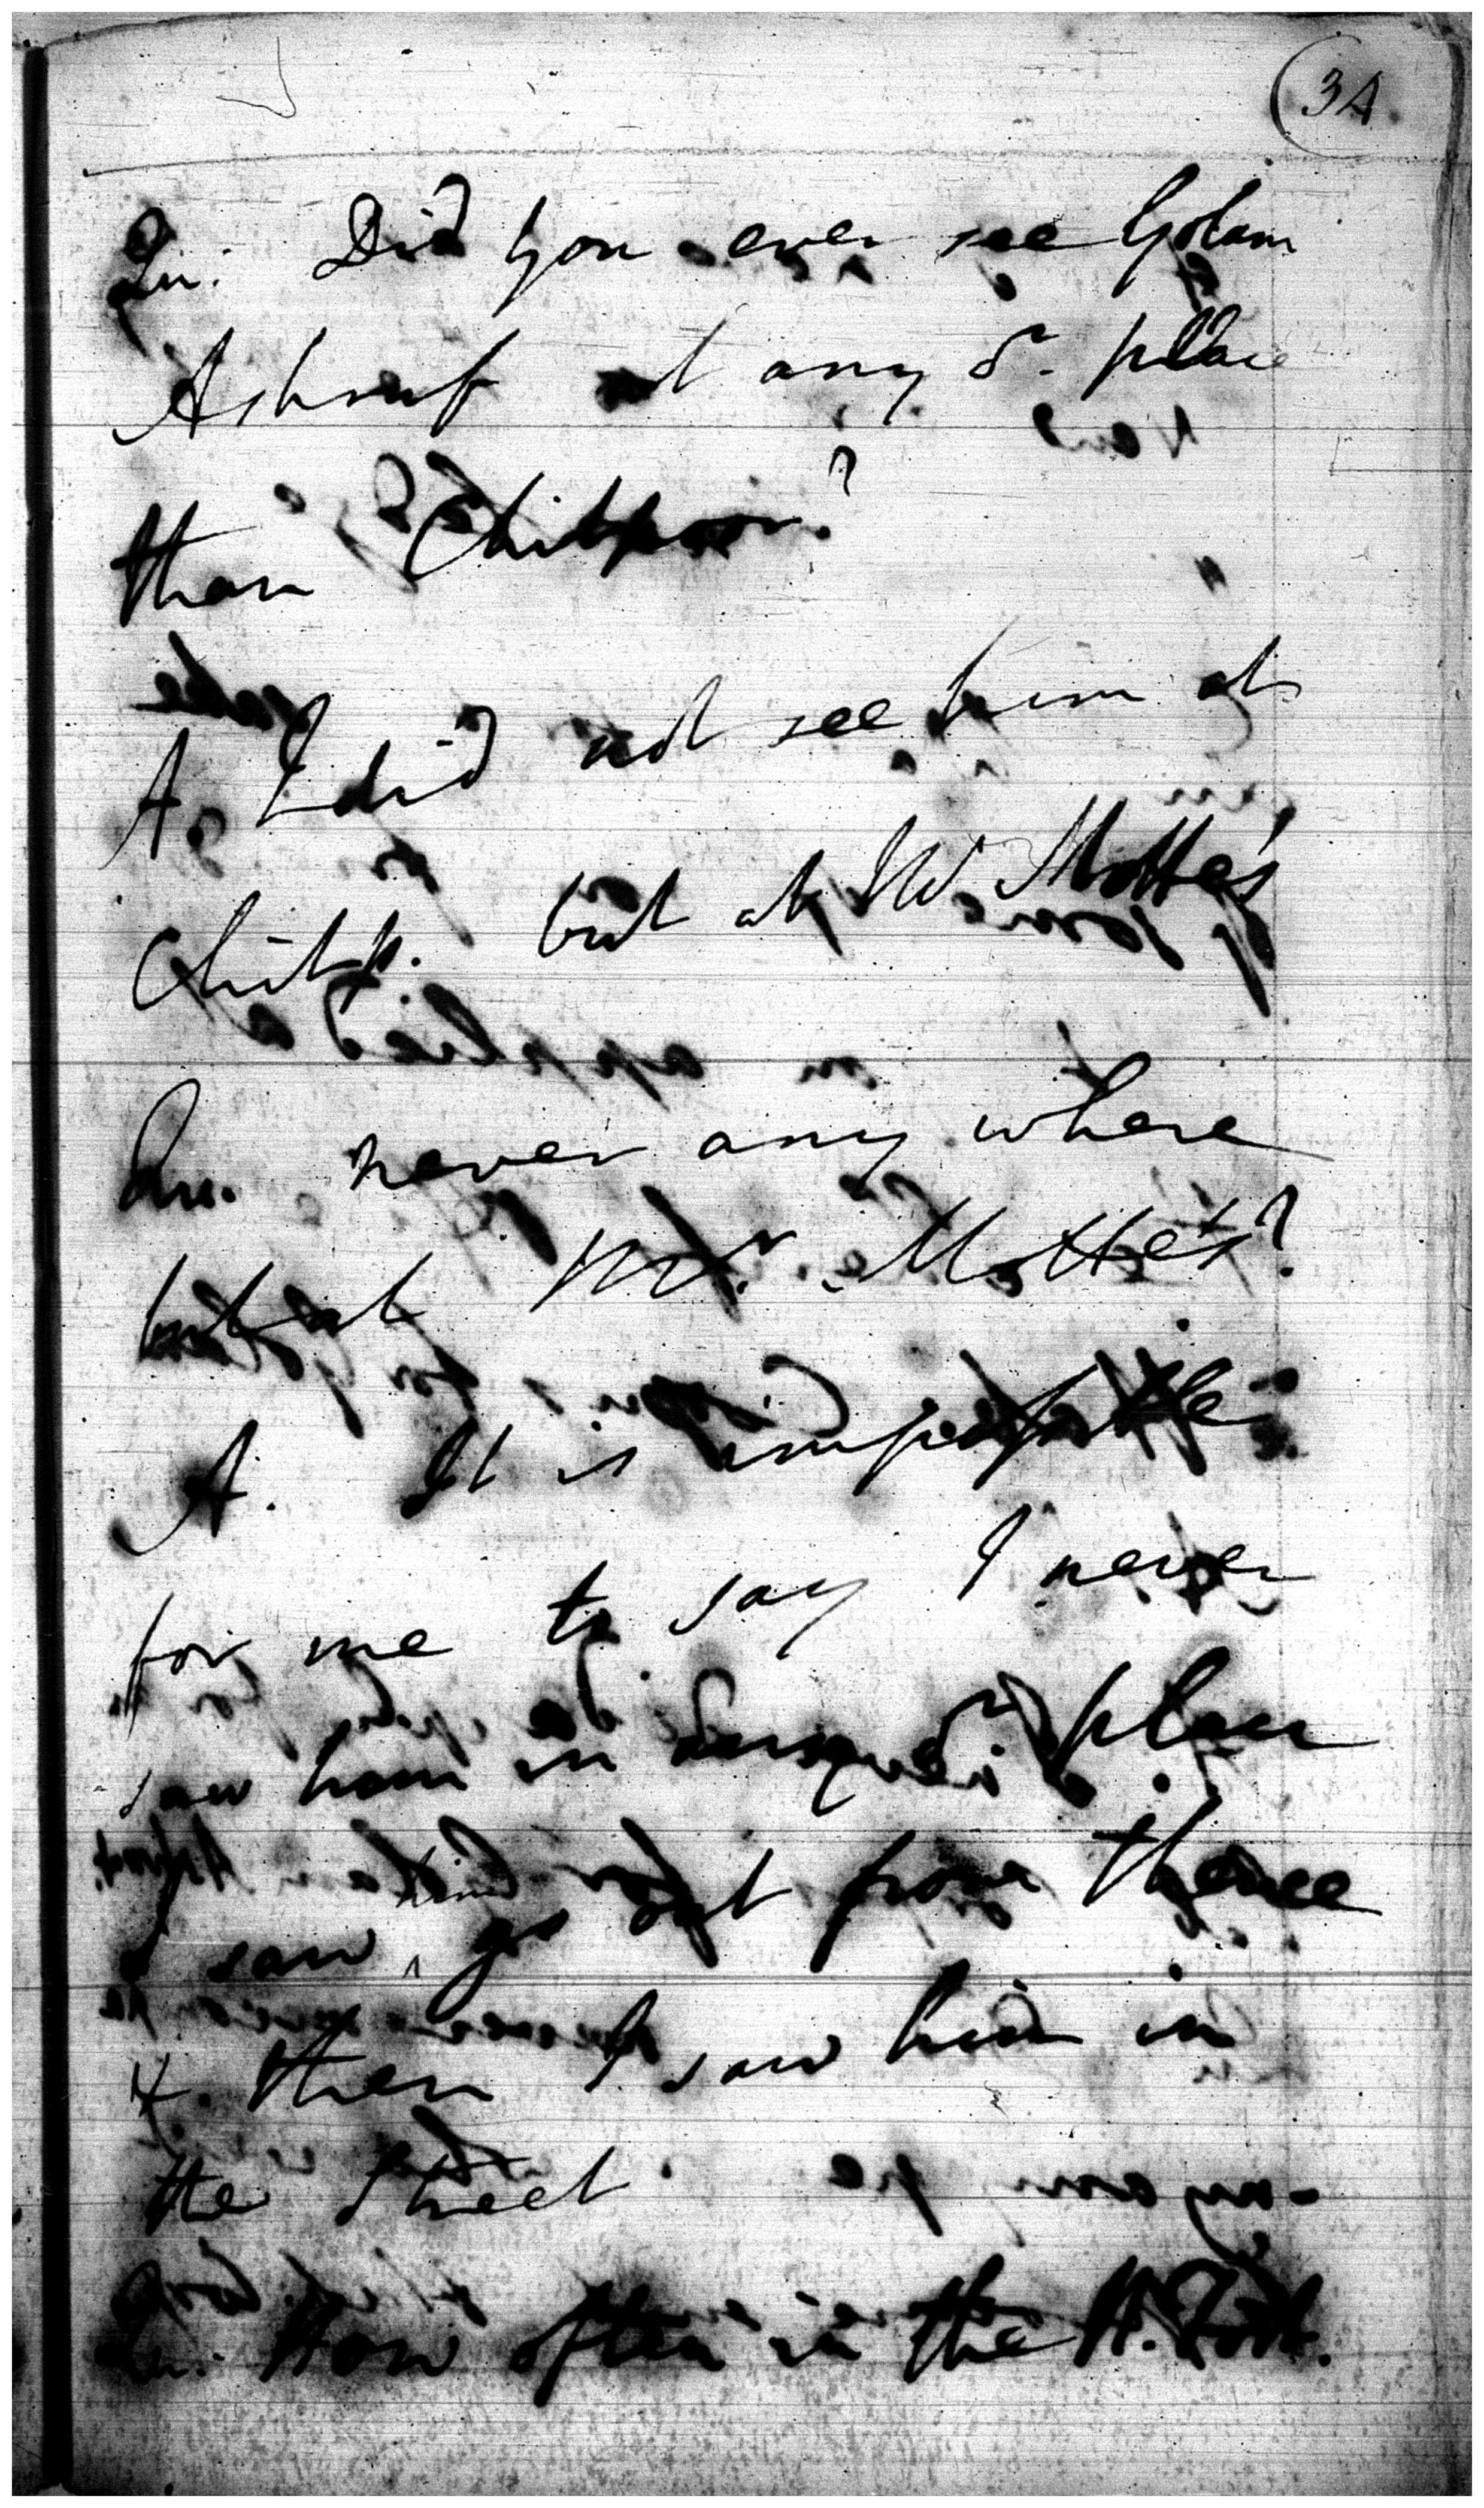 34
Qu. Did you ever see Golam
Ashruf at any o.r place
than Chitpoor?
A. I did not see him at
Chitp. but at Mr Motte's
Qu. never any where
but at Mr. Motte's?
A. It is impossible
for me to say I never
saw him in any o.r place
I saw him go out from thence
& then I saw him in
the Street
Qu. How often in the